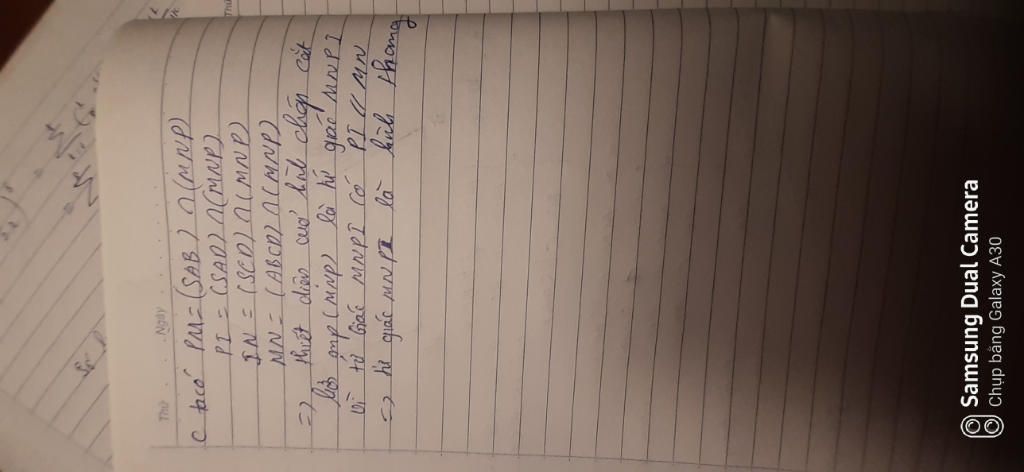 Thứ
Ngày
c ta có PM = (SAB) ∩ (MNP)
PI = (SAD) ∩ (MNP)
IN = (SCD) ∩ (MNP)
MN = (ABCD) ∩ (MNP)
=> thiết diện của hình chóp cắt
bởi mp (MNP) là tứ giác MNPI
Vì tứ giác MNPI có PI // MN
=> tứ giác MNPI là hình thang
Samsung Dual Camera
Chụp bằng Galaxy A30